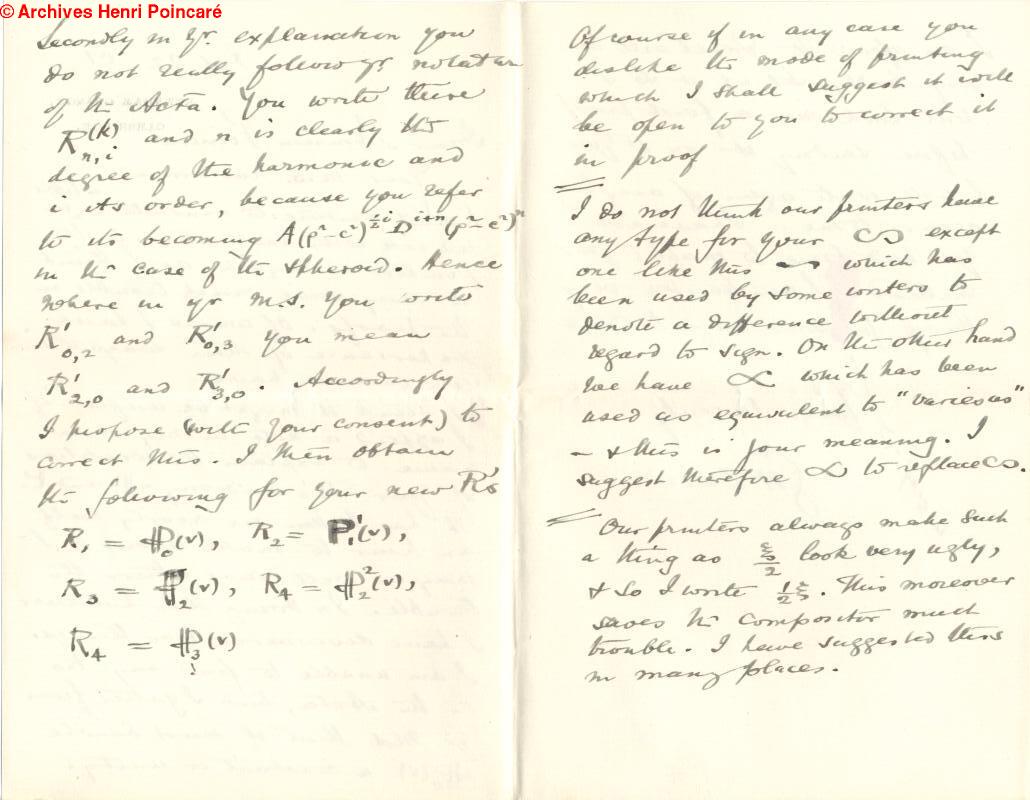 © Archives Henri Poincaré
Secondly in yr. explanation you
do not really follow yr notation
of the Acta. You write there
R^{(k)}_{n,i} and n is clearly the
degree of the harmonic and
i its order, because you refer
to its becoming A(ρ²-c²)^{½i} D^{i+n}(ρ²-c²)^n
in the case of the spheroid. Hence
where in yr m.s. you write
R'_{0,2} and R'_{0,3} you mean
R'_{2,0} and R'_{3,0}. Accordingly
I propose (with your consent) to
correct this. I then obtain
the following for your new R's
R_1 = ℙ_0(ν), R_2 = P'_1(ν),
R_3 = ℙ_2(ν), R_4 = ℙ_2^2(ν),
R_4 = ℙ_3(ν)
Of course if in any case you
dislike the mode of printing
which I shall suggest it will
be open to you to correct it
in proof
I do not think our printers have
any type for your ∽ except
one like this ~ which has
been used by some writers to
denote a difference without
regard to sign. On the other hand
we have ∝ which has been
used as equivalent to "varies as"
– & this is your meaning. I
suggest therefore ∝ to replace ∽.
Our printers always make such
a thing as ξ/2 look very ugly,
& so I write ½ξ. This moreover
saves the compositor much
trouble. I have suggested this
in many places.